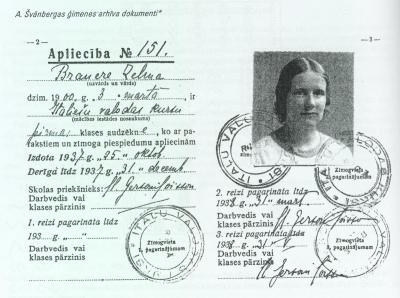 A. Švānbergas ģimenes arhīva dokumenti*
—2—
Apliecība № 151.
Branere Zelma
(uzvārds un vārds)
dzim. 1900. g. „3„ martā, ir
Itāliešu valodas kursu
(mācības iestādes nosaukums)
pirmās klases audzēkne, ko ar pa-
rakstiem un zīmoga piespiedumu apliecinām
Izdota 1937 g. „25„ oktob.
Derīga līdz 1937 g. „31„ decemb.
Skolas priekšnieks:
Darbvedis vai
klases pārzinis
1. reizi pagarināta līdz
193 g. „ „
Darbvedis vai
klases pārzinis
ITAĻU VALODAS
Zīmogvieta
1. pagarinājumam
—3—
ITAĻU VALODAS
Zīmogvieta
2. pagarinājumam
2. reizi pagarināta līdz
1938 g. „31„ mart.
Darbvedis vai
klases pārzinis
3. reizi pagarināta līdz
1938 g. „31„ V
Darbvedis vai
klases pārzinis
Zīmogvieta
3. pagarinājumam